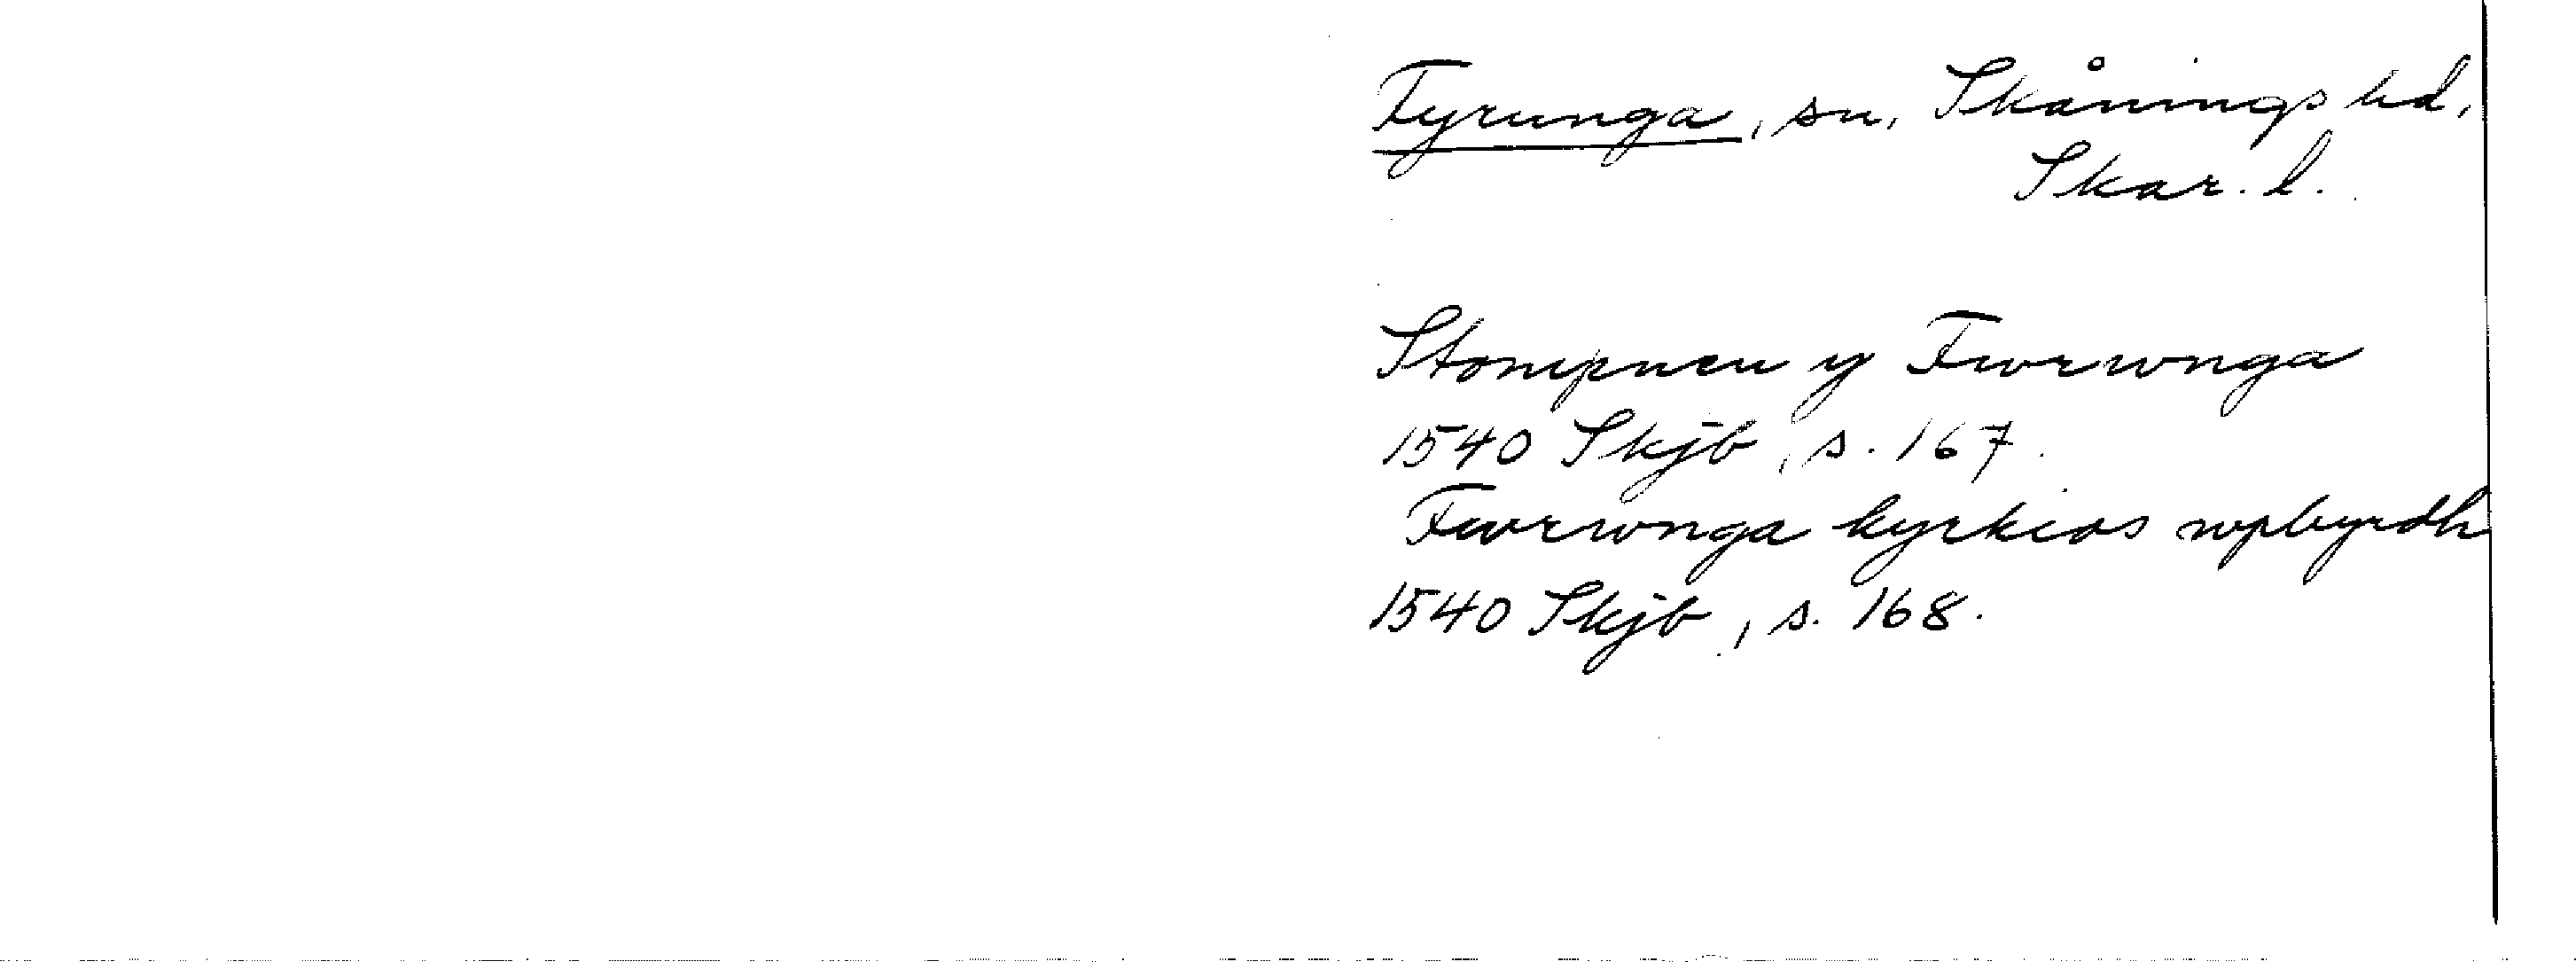 Fyrunga, sn, Skånings hd,
Skar. l.
Stompnen y Fwrwnga
1540 Skjb, s. 167.
Fwrwnga kyrkios wpbyrdh
1540 Skjb, s. 168.